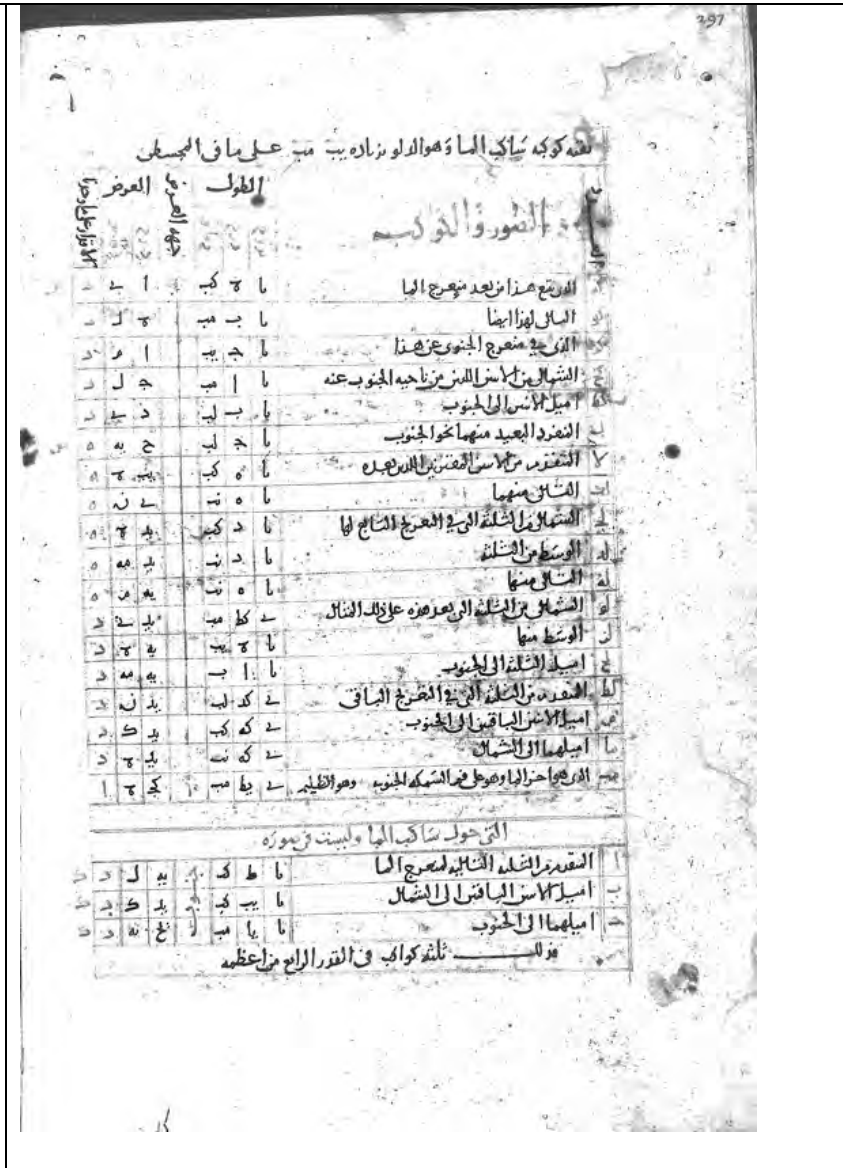 297
بقيه كوكبه ساكب الما وهو الدلو بزياده يب مب على ما فى المجسطى
الصور والكواكب الطول جهه العرض العرض
الذى يتبع هذا من بعد منعرج الما يا ه كب ا ى د
التالى لهذا ايضا يا ب مب ه ل د
الذى فى منعرج الجنوبى عن هذا يا ج يب ا م د
الشمالى من الاثنين اللذين من ناحيه الجنوب عنه يا ا مب ج ل د
اميل الاثنين الى الجنوب يا ب لب د ى د
المنفرد البعيد منهما نحو الجنوب يا ج لب ح يه ه
المتقدم من الاثنين المقترنين اللذين بعده يا ه كب يب ه ه
التالى منهما يا ه نب ى ن ه
الشمالى من الثلثه التى فى التعريج التابع لها يا د كب يد ه ه
الوسط من الثلثه يا د نب يد مه ه
التالى منها يا ه نب يه م ه
الشمالى من الثلثه التى بعد هذه على ذلك المثال ى كط مب يد ى د
الوسط منها يا ه يب يه ه د
اميل الثلثه الى الجنوب يا ا ب يه مه د
المتقدم من الثلثه التى فى التعريج الباقى ى كد لب يد ن د
اميل الاثنين الباقيين الى الجنوب ى كه كب يد ك د
اميلهما الى الشمال ى كه نب يد ه د
الذى هو اخر الما وهو على فم السمكه الجنوبيه وهو الظليم ى يط مب كج ه ا
التى حول ساكب الما وليست فى صورته
ا المتقدم من الثلثه التاليه لمنعرج الما يا ط كب يه ل د
ب اميل الاثنين الباقيين الى الشمال يا يب كب يد ك د
ج اميلهما الى الجنوب يا يا مب يح يه د
فذلك ثلثه كواكب فى القدر الرابع من اعظمه